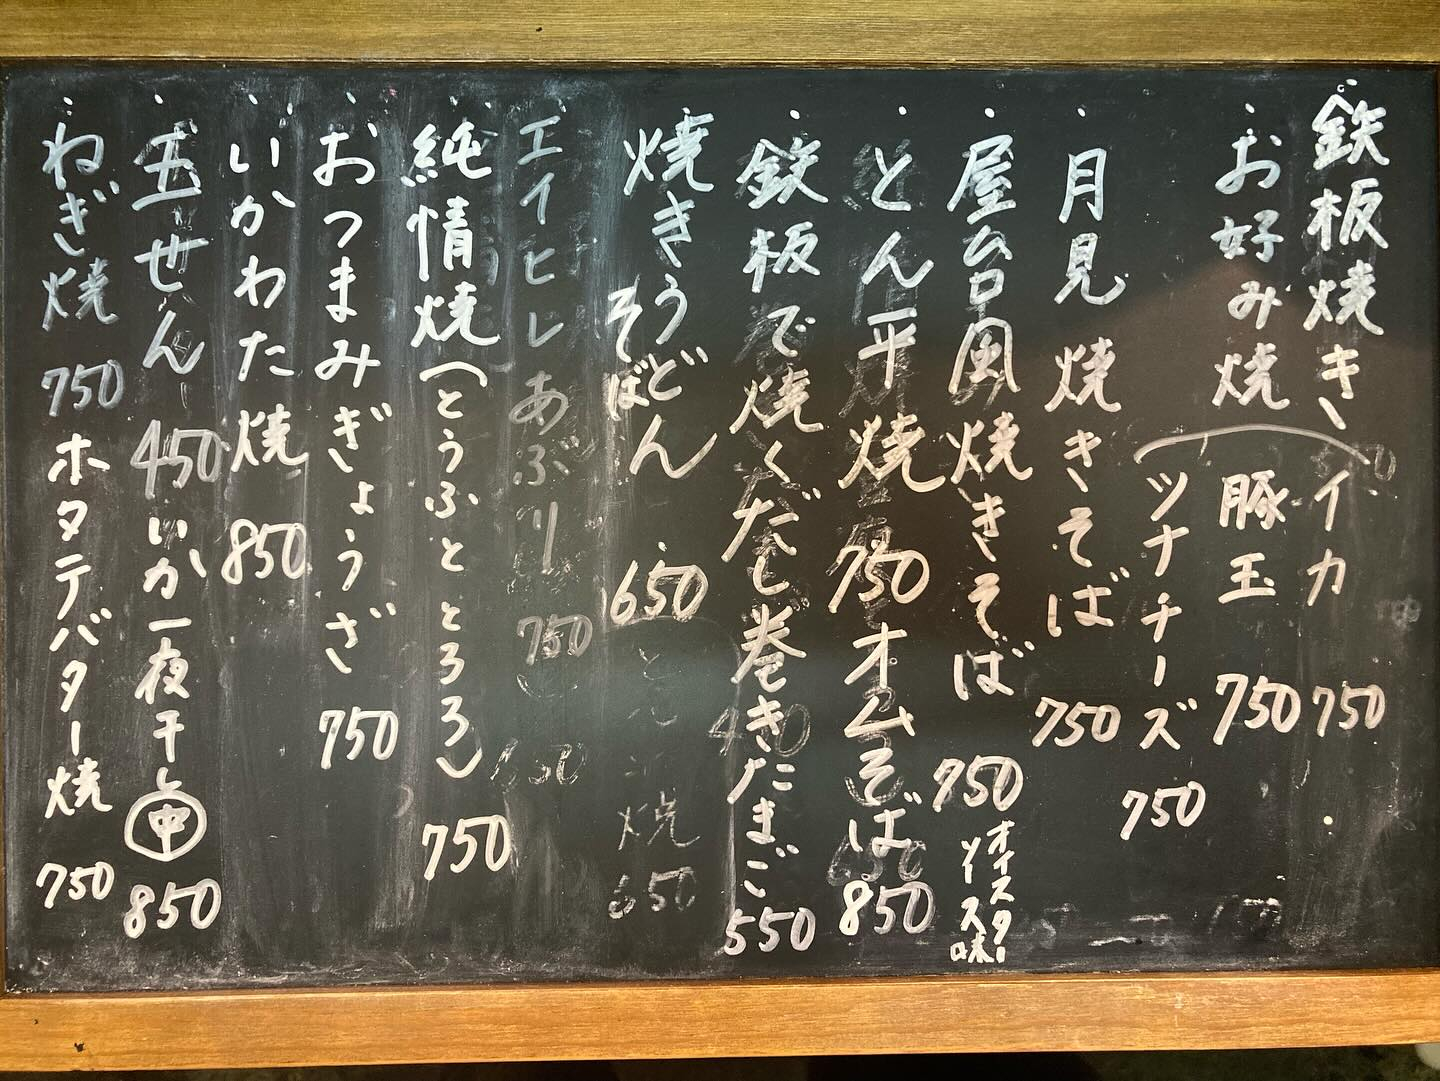 ・鉄板焼き、イカ 750
・お好み焼 豚玉 750
ツナチーズ 750
・月見焼きそば 750
・屋台風焼きそば 750 オイスターソース味
・とん平焼 750 オムそば 850
・鉄板で焼くだし巻きたまご 550
・焼きうどん 650
そば
・エイヒレあぶり 750
・純情焼(とうふととろろ) 750
・おつまみぎょうざ 750
・いかわた焼 850
・玉せん 450 いか一夜干し 850
・ねぎ焼 750 ホタテバター焼 750